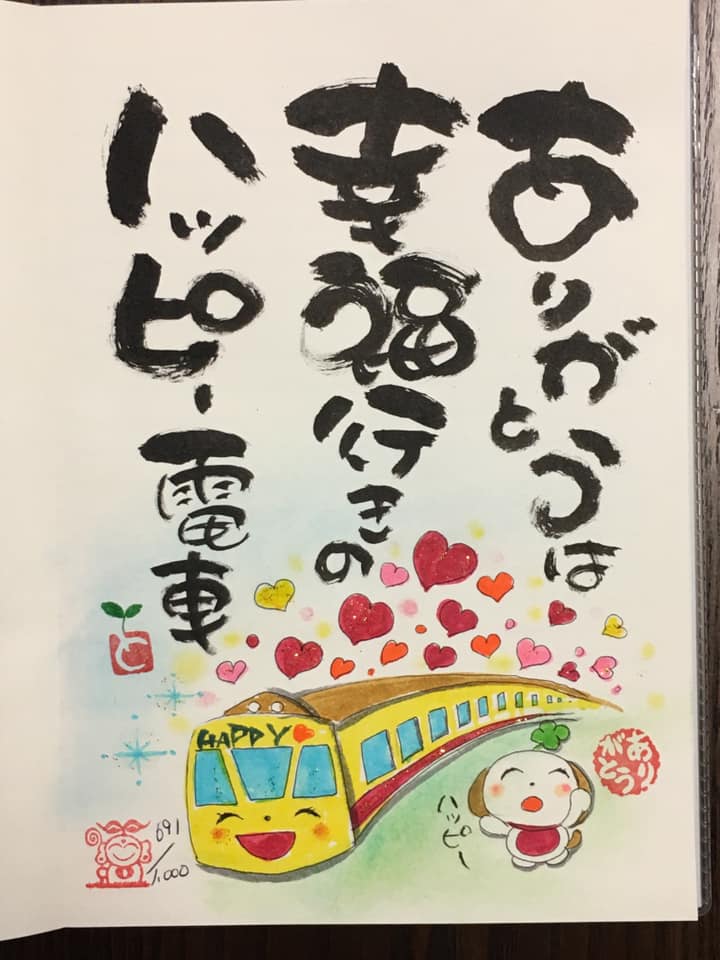 ありがとうは
幸福行きの
ハッピー電車
HAPPY
ハッピー
ありがとう
と
691/1,000